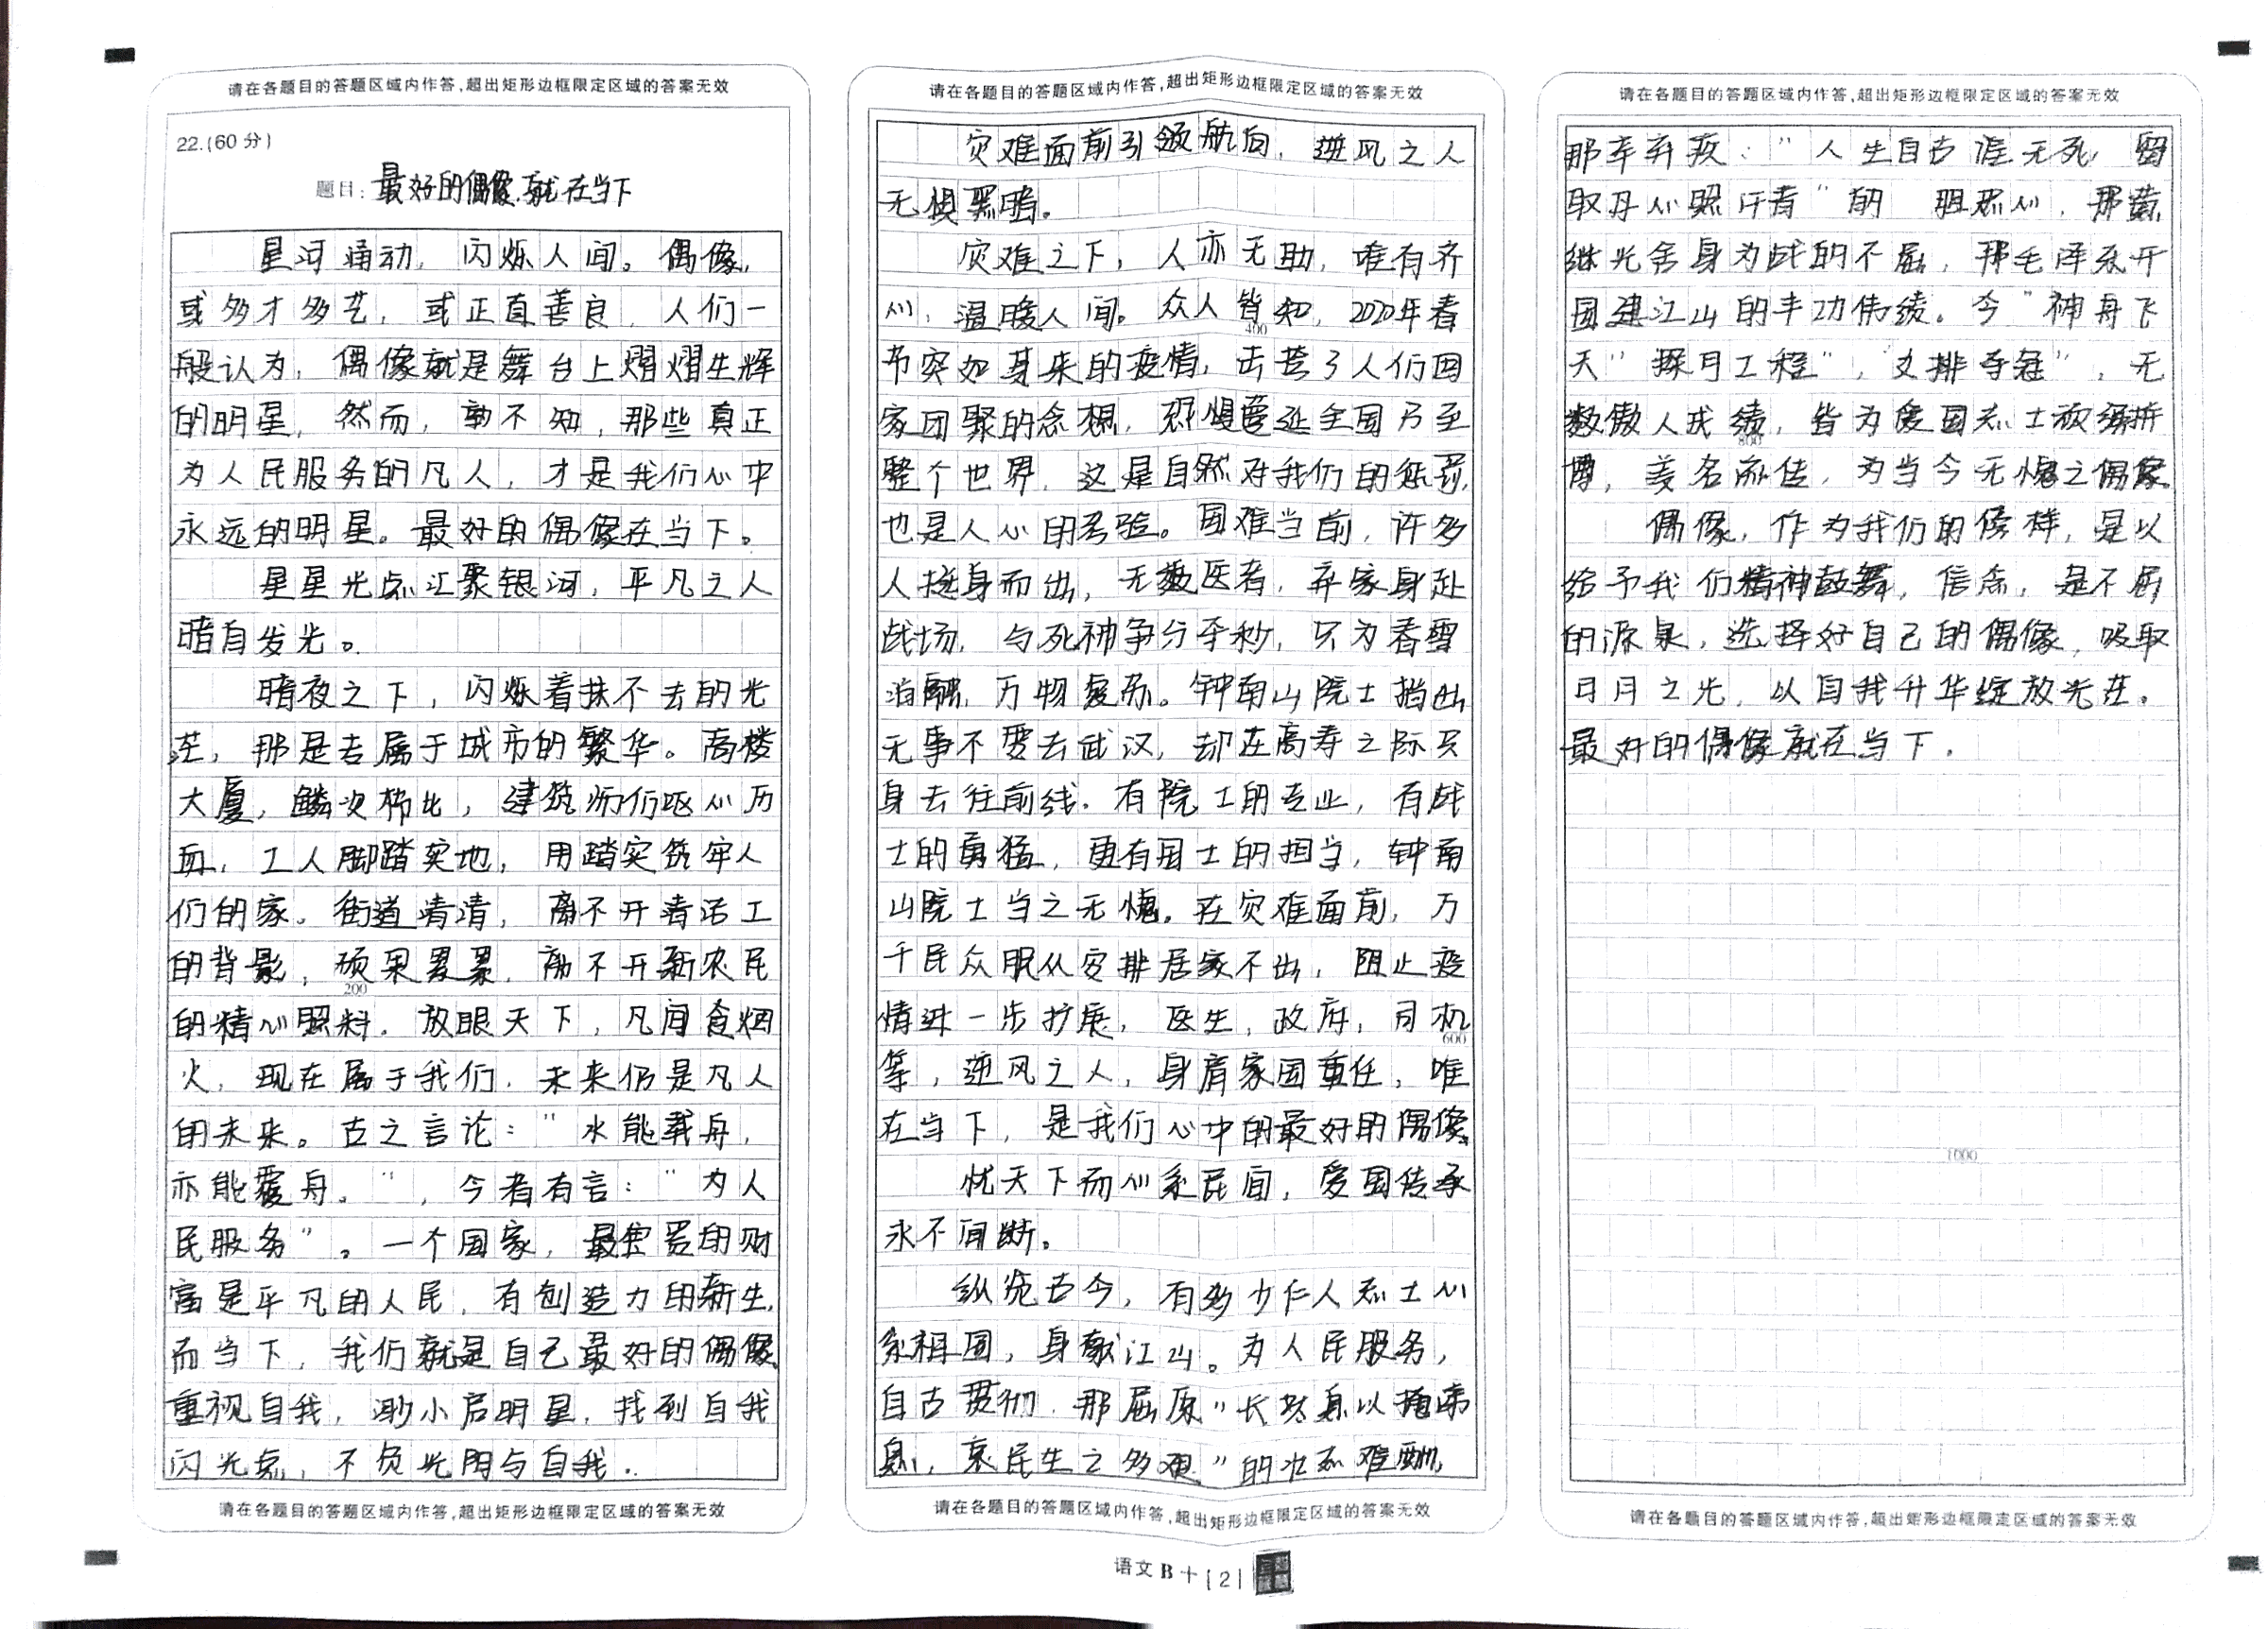 请在各题目的答题区域内作答,超出矩形边框限定区域的答案无效
22.(60分)
题目:最好的偶像,就在当下
星河涌动，闪烁人间。偶像，
或多才多艺，或正直善良，人们一
般认为，偶像就是舞台上熠熠生辉
的明星，然而，孰不知，那些真正
为人民服务的凡人，才是我们心中
永远的明星。最好的偶像在当下。
星星光点汇聚银河，平凡之人
暗自发光。
暗夜之下，闪烁着抹不去的光
芒，那是专属于城市的繁华。高楼
大厦，鳞次栉比，建筑师们呕心历
血，工人脚踏实地，用踏实筑牢人
们的家。街道清清，离不开清洁工
的背影，硕果累累，离不开新农民
200
的精心照料。放眼天下，凡间食烟
火，现在属于我们，未来仍是凡人
的未来。古之言论：“水能载舟，
亦能覆舟。”，今者有言：“为人
民服务”。一个国家，最宝贵的财
富是平凡的人民，有创造力的新生，
而当下，我们就是自己最好的偶像，
重视自我，渺小启明星，找到自我
闪光点，不负光阴与自我．
请在各题目的答题区域内作答,超出矩形边框限定区域的答案无效
请在各题目的答题区域内作答,超出矩形边框限定区域的答案无效
灾难面前引领航向，逆风之人
无惧黑暗。
灾难之下，人亦无助，唯有齐
心，温暖人间。众人皆知，2020年春
400
节突如其来的疫情，击苍了人们回
家团聚的念想，恐惧蔓延全国乃至
整个世界，这是自然对我们的惩罚，
也是人心的考验。国难当前，许多
人挺身而出，无数医者，弃家身赴
战场，与死神争分夺秒，只为春雪
消融，万物复苏。钟南山院士指出
无事不要去武汉，却在高寿之际只
身去往前线．有院士的专业，有战
士的勇猛，更有国士的担当，钟南
山院士当之无愧。在灾难面前，万
千民众服从安排居家不出，阻止疫
情进一步扩展，医生，政府，司机
600
等，逆风之人，身肩家国重任，唯
在当下，是我们心中的最好的偶像。
忧天下而心系民间，爱国传承
永不间断。
纵览古今，有多少仁人志士心
系祖国，身献江山。为人民服务，
自古贯彻．那屈原“长太息以掩涕
息，哀民生之多艰”的壮志难酬，
请在各题目的答题区域内作答,超出矩形边框限定区域的答案无效
请在各题目的答题区域内作答,超出矩形边框限定区域的答案无效
那辛弃疾：“人生自古谁无死，留
取丹心照汗青”的 胆忠心，那黄
继光舍身为战的不屈，那毛泽东开
国建江山的丰功伟绩。今“神舟飞
天”“探月工程”，“女排夺冠”，无
数傲人成绩，皆为爱国志士顽强拼
800
博，美名流传，为当今无愧之偶像。
偶像，作为我们的傣样，是以
给予我们精神鼓舞，信念，是不屈
的源泉，选择好自己的偶像，吸取
日月之光，以自我升华绽放光芒。
最好的偶像就在当下．
1000
请在各题目的答题区域内作答,超出矩形边框限定区域的答案无效
语文 B 十 [2]